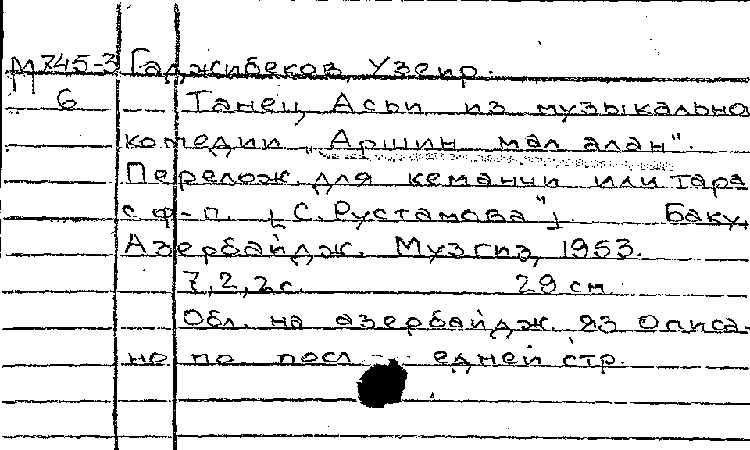 М 745-3 Гаджибеков, Узеир.
6 Танец Асьи из музыкально
комедии „Аршин мал алан".
Перелож. для кеманчи или тара
с ф-п. [С. Рустамова"] Баку,
Азербайдж. Музгиз, 1953.
7, 2, 2 с. 29 см.
Обл. на азербайдж. яз Описа-
но по последней стр.